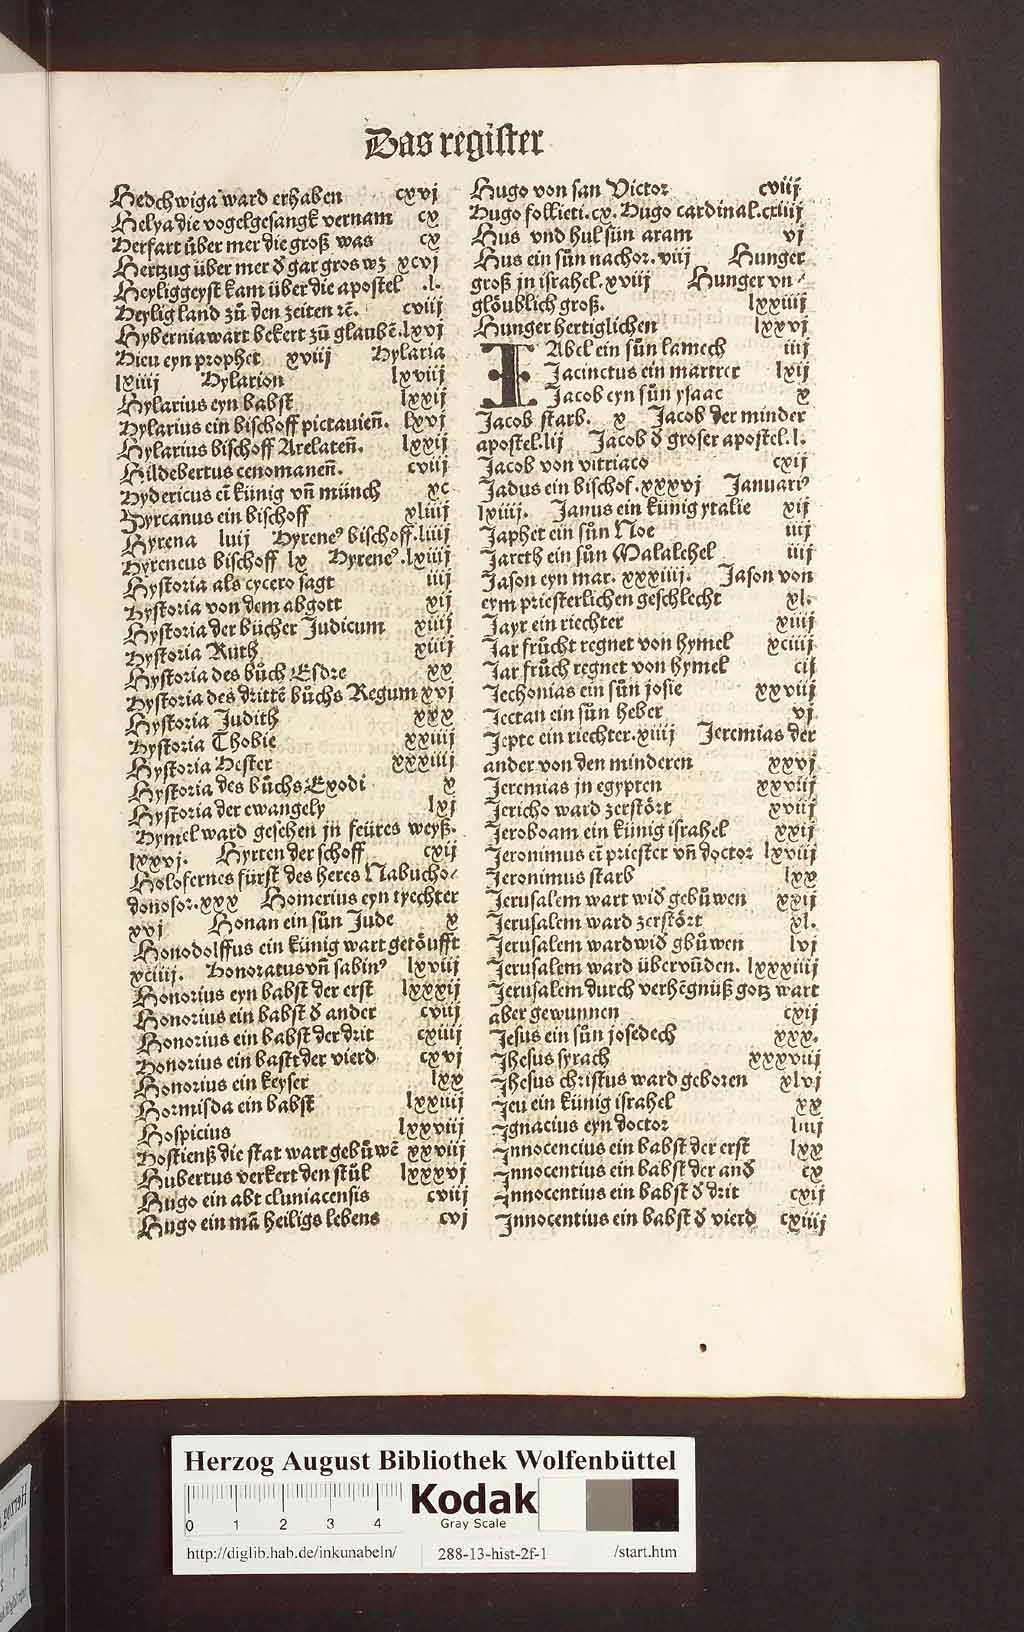 Das register
Hedchwiga ward erhaben cxvj
Helya die vogelgesangk vernam cx
Herfart über mer die groß was cx
Hertzug über mer d̕ gar gros wz xcvj
Heyliggeyst kam über die apostel .l.
Heylig land zů den zeiten ⁊c̄. cviij
Hyberniawart bekert zů glaubē.lxvj
Hieu eyn prophet xviij Hylaria
lxiiij Hylarion lxviij
Hylarius eyn babst lxxij
Hylarius ein bischoff pictauien̄. lxvj
Hylarius bischoff Arelaten̄. lxxij
Hildebertus cenomanen̄. cviij
Hydericus ei̅ künig vn̄ münch xc
Hyrcanus ein bischoff xliiij
Hyrena luij Hyreneꝰ bischoff.liiij
Hyreneus bischoff lx Hyreneꝰ.lxiiij
Hystoria als cycero sagt iiij
Hystoria von dem abgott xij
Hystoria der bücher Judicum xiiij
Hystoria Ruth xiiij
Hystoria des bůch Esdre xx
Hystoria des drittē bůchs Regum xvj
Hystoria Judith xxx
Hystoria Thobie xxiiij
Hystoria Hester xxxiiij
Hystoria des bůchs Exodi x
Hystoria der ewangely lxj
Hymel ward gesehen jn feüres weyß.
lxxvj. Hyrten der schoff cxij
Holofernes fürst des heres Nabucho⸗
donosor.xxx Homerius eyn tyechter
xvj Honan ein sůn Jude x
Honodolffus ein künig wart getöufft
xciiij. Honoratus vn̄ sabinꝰ lxviij
Honorius eyn babst der erst lxxxij
Honorius ein babst d̕ ander cviij
Honorius ein babst der drit cxiiij
Honorius ein bastt der vierd cxvj
Honorius ein keyser lxx
Hormisda ein babst lxxiiij
Hospicius lxxviij
Hostienß die stat wart gebůwē xxviij
Hubertus verkert den stůl lxxxvj
Hugo ein abt cluniacensis cviij
Hugo ein mā heiligs lebens cvj
Hugo von san Victor cviij
Hugo follieti.cx. Hugo cardinal.cxiiij
Hus vnd hul sün aram vj
Hus ein sůn nachor.viij Hunger
groß jn israhel.xviij Hunger vn⸗
glöublich groß. lxxiiij
Hunger hertiglichen lxxvj
IAbel ein sůn lamech iiij
Jacinctus ein martrer lxij
Jacob eyn sůn ysaac x
Jacob starb. x Jacob der minder
apostel.lij Jacob d̕ groser apostel.l.
Jacob von vitriaco cxij
Jadus ein bischof.xxxvj Januariꝰ
lxiiij. Janus ein künig ytalie xij
Japhet ein sůn Noe iiij
Jareth ein sůn Malalehel iiij
Jason eyn mar. xxxiiij. Jason von
eym priesterlichen geschlecht xl.
Jayr ein riechter xiiij
Jar frůcht regnet von hymel xciiij
Jar frůch regnet von hymel cij
Jechonias ein sůn josie xxviij
Jectan ein sůn heber vj
Jepte ein riechter.xiiij Jeremias der
ander von den minderen xxvj
Jeremias jn egypten xxviij
Jericho ward zerstört xviij
Jeroboam ein künig israhel xxij
Jeronimus ei̅ priester vn̄ doctor lxviij
Jeronimus starb lxx
Jerusalem wart wid̕ gebůwen xxij
Jerusalem ward zerstört xl.
Jerusalem ward wid̕ gbůwen lvj
Jerusalem ward übervūden. lxxxiiij
Jerusalem durch verhēgnüß gotz wart
aber gewunnen cxij
Jesus ein sůn josedech xxx.
Jhesus syrach xxxviij
Jhesus christus ward geboren xlvj
Jeu ein künig israhel xx
Ignacius eyn doctor liiij
Innocencius ein babst der erst lxx
Innocentius ein babst der and̕ cx
Innocentius ein babst d̕ drit cxij
Innocentius ein babst d̕ vierd cxiiij
Herzog August Bibliothek Wolfenbüttel
0 1 2 3 4
Kodak
Gray Scale
http://diglib.hab.de/inkunabeln/ 288-13-hist-2f-1 /start.htm